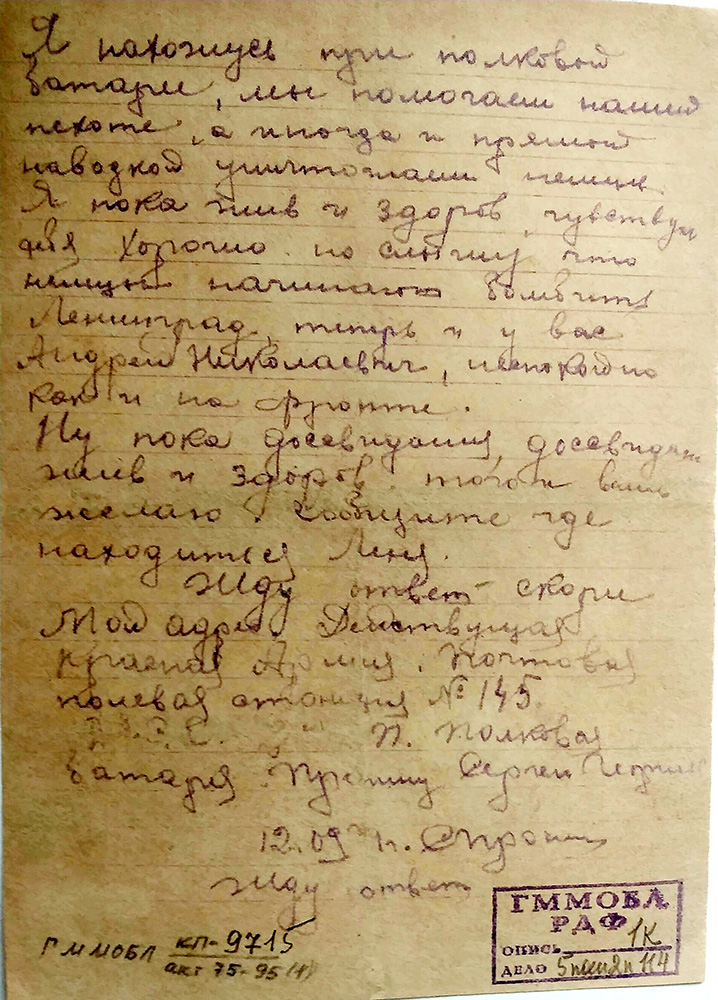 Я нахожусь при полковой
батареи, мы помогаем нашей
пехоте, а иногда и прямой
наводкой уничтожаем немцев.
Я пока жив и здоров, чувствую
себя хорошо. но слышу что
немцы начинают бомбить
Ленинград, теперь и у вас
Андрей Николаевич, неспокойно
как и на фронте.
Ну пока досвидания, досвидания
жив и здоров. того и вам
желаю. Сообщите где
находиться Леня.
Жду ответ скори
Мой адрес. Действующая
красная Армия. Почтовая
полевая станция № 145.
П. Полковая
батарея. Сергей
12.09
Жду ответ
ГММОБЛ КП-9715
акт 75-95(1)
ГММОБЛ
РДФ
ОПИСЬ 1К
ДЕЛО 114